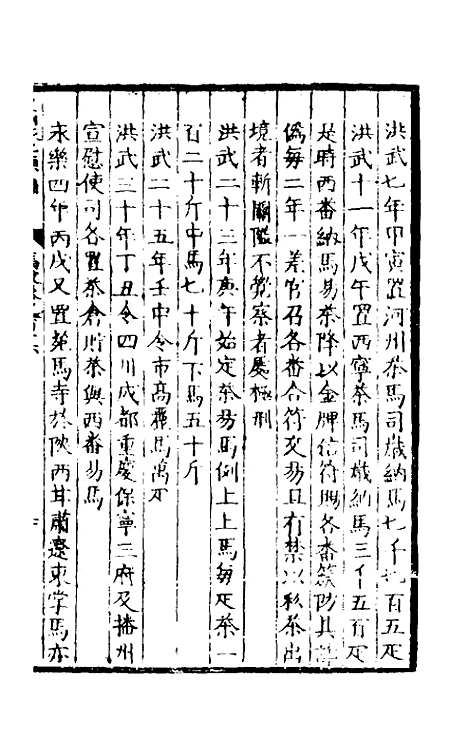 洪武七年甲寅置河州茶馬司歲納馬七千七百五疋
洪武十一年戊午置西寧茶馬司歲納馬三千五百疋
是時西番納馬易茶降以金牌信符賜各番欽防其詐
偽每三年一差官召各番合符交易且有禁以私茶出
境者斬關隘不覺察者處極刑
洪武二十三年庚午始定茶易馬例上上馬每疋茶一
百二十斤中馬七十斤下馬五十斤
洪武二十五年壬申令市高麗馬萬疋
洪武三十年丁丑令四川成都重慶保寧三府及播州
宣慰使司各置茶倉貯茶與西番易馬
永樂四年丙戌又置苑馬寺於陜西甘肅遼東掌馬亦